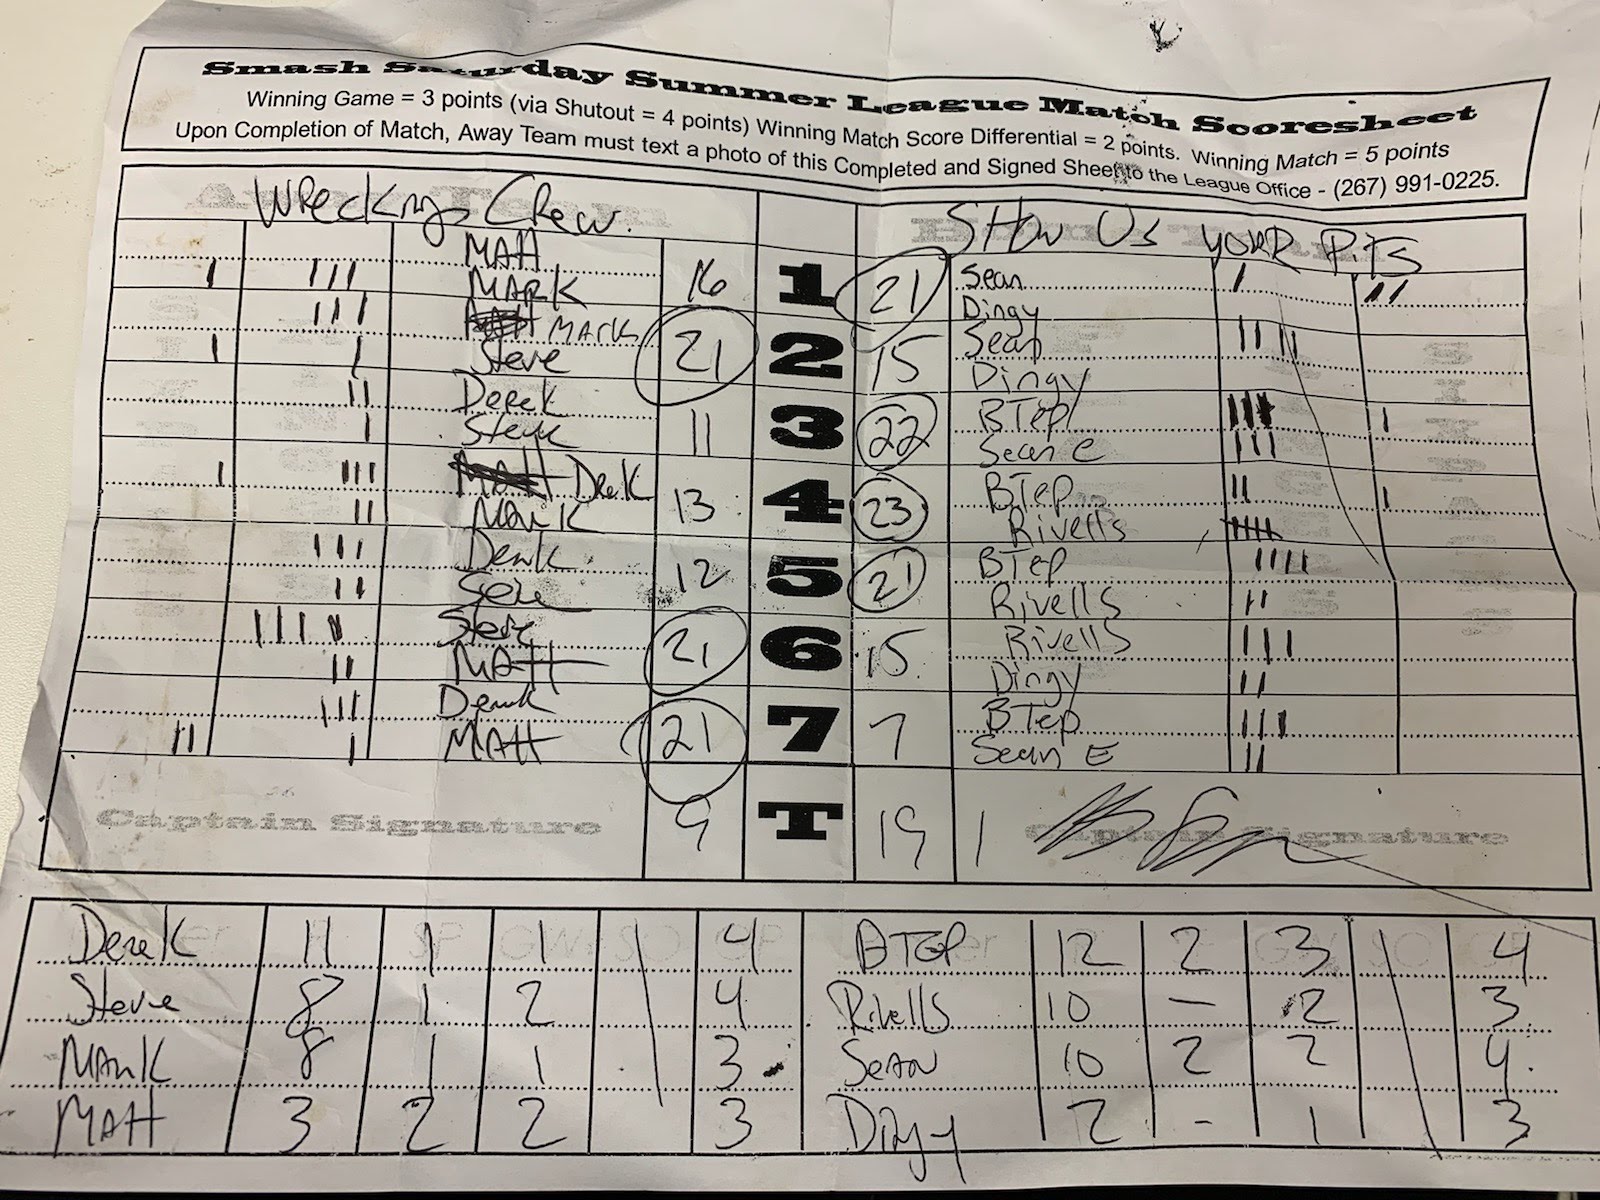 Smash Saturday Summer League Match Scoresheet
Winning Game = 3 points (via Shutout = 4 points) Winning Match Score Differential = 2 points. Winning Match = 5 points
Upon Completion of Match, Away Team must text a photo of this Completed and Signed Sheet to the League Office - (267) 991-0225.
Wrecking Crew. SHOW US YOUR PITS
MATT
MARK 16 1 21 Sean
Dingy
MARK
Steve 21 2 15 Sean
Dingy
Derek
Steve 11 3 22 BTep
Sean E
Derek
Mark 13 4 23 BTep
Rivells
Derek
Steve 12 5 21 BTep
Rivells
Steve
MATT 21 6 15 Rivells
Dingy
Derek
MATT 21 7 7 BTep
Sean E
Captain Signature 9 T 19 Captain Signature
Derek 11 1 1 4 BTEP 12 2 3 4
Steve 8 1 2 4 Rivells 10 - 2 3
MARK 8 1 1 3 SEAN 10 2 2 4
MATT 3 2 2 3 Dingy 2 - 1 3